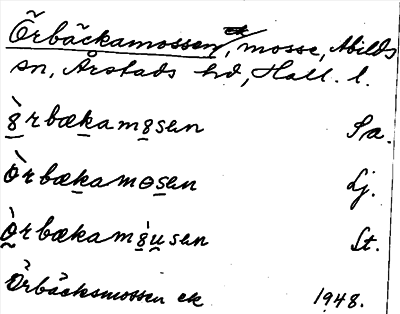 Örbäckamossen, mosse, Abilds
sn, Årstads hd, Hall. l.
ò̱rbæḵamo̱sen Sa.
òrbæḵamɵs̱en Lj.
ò̰rbæḵamò̱ṵsen St.
Örbäcksmossen ek 1948.